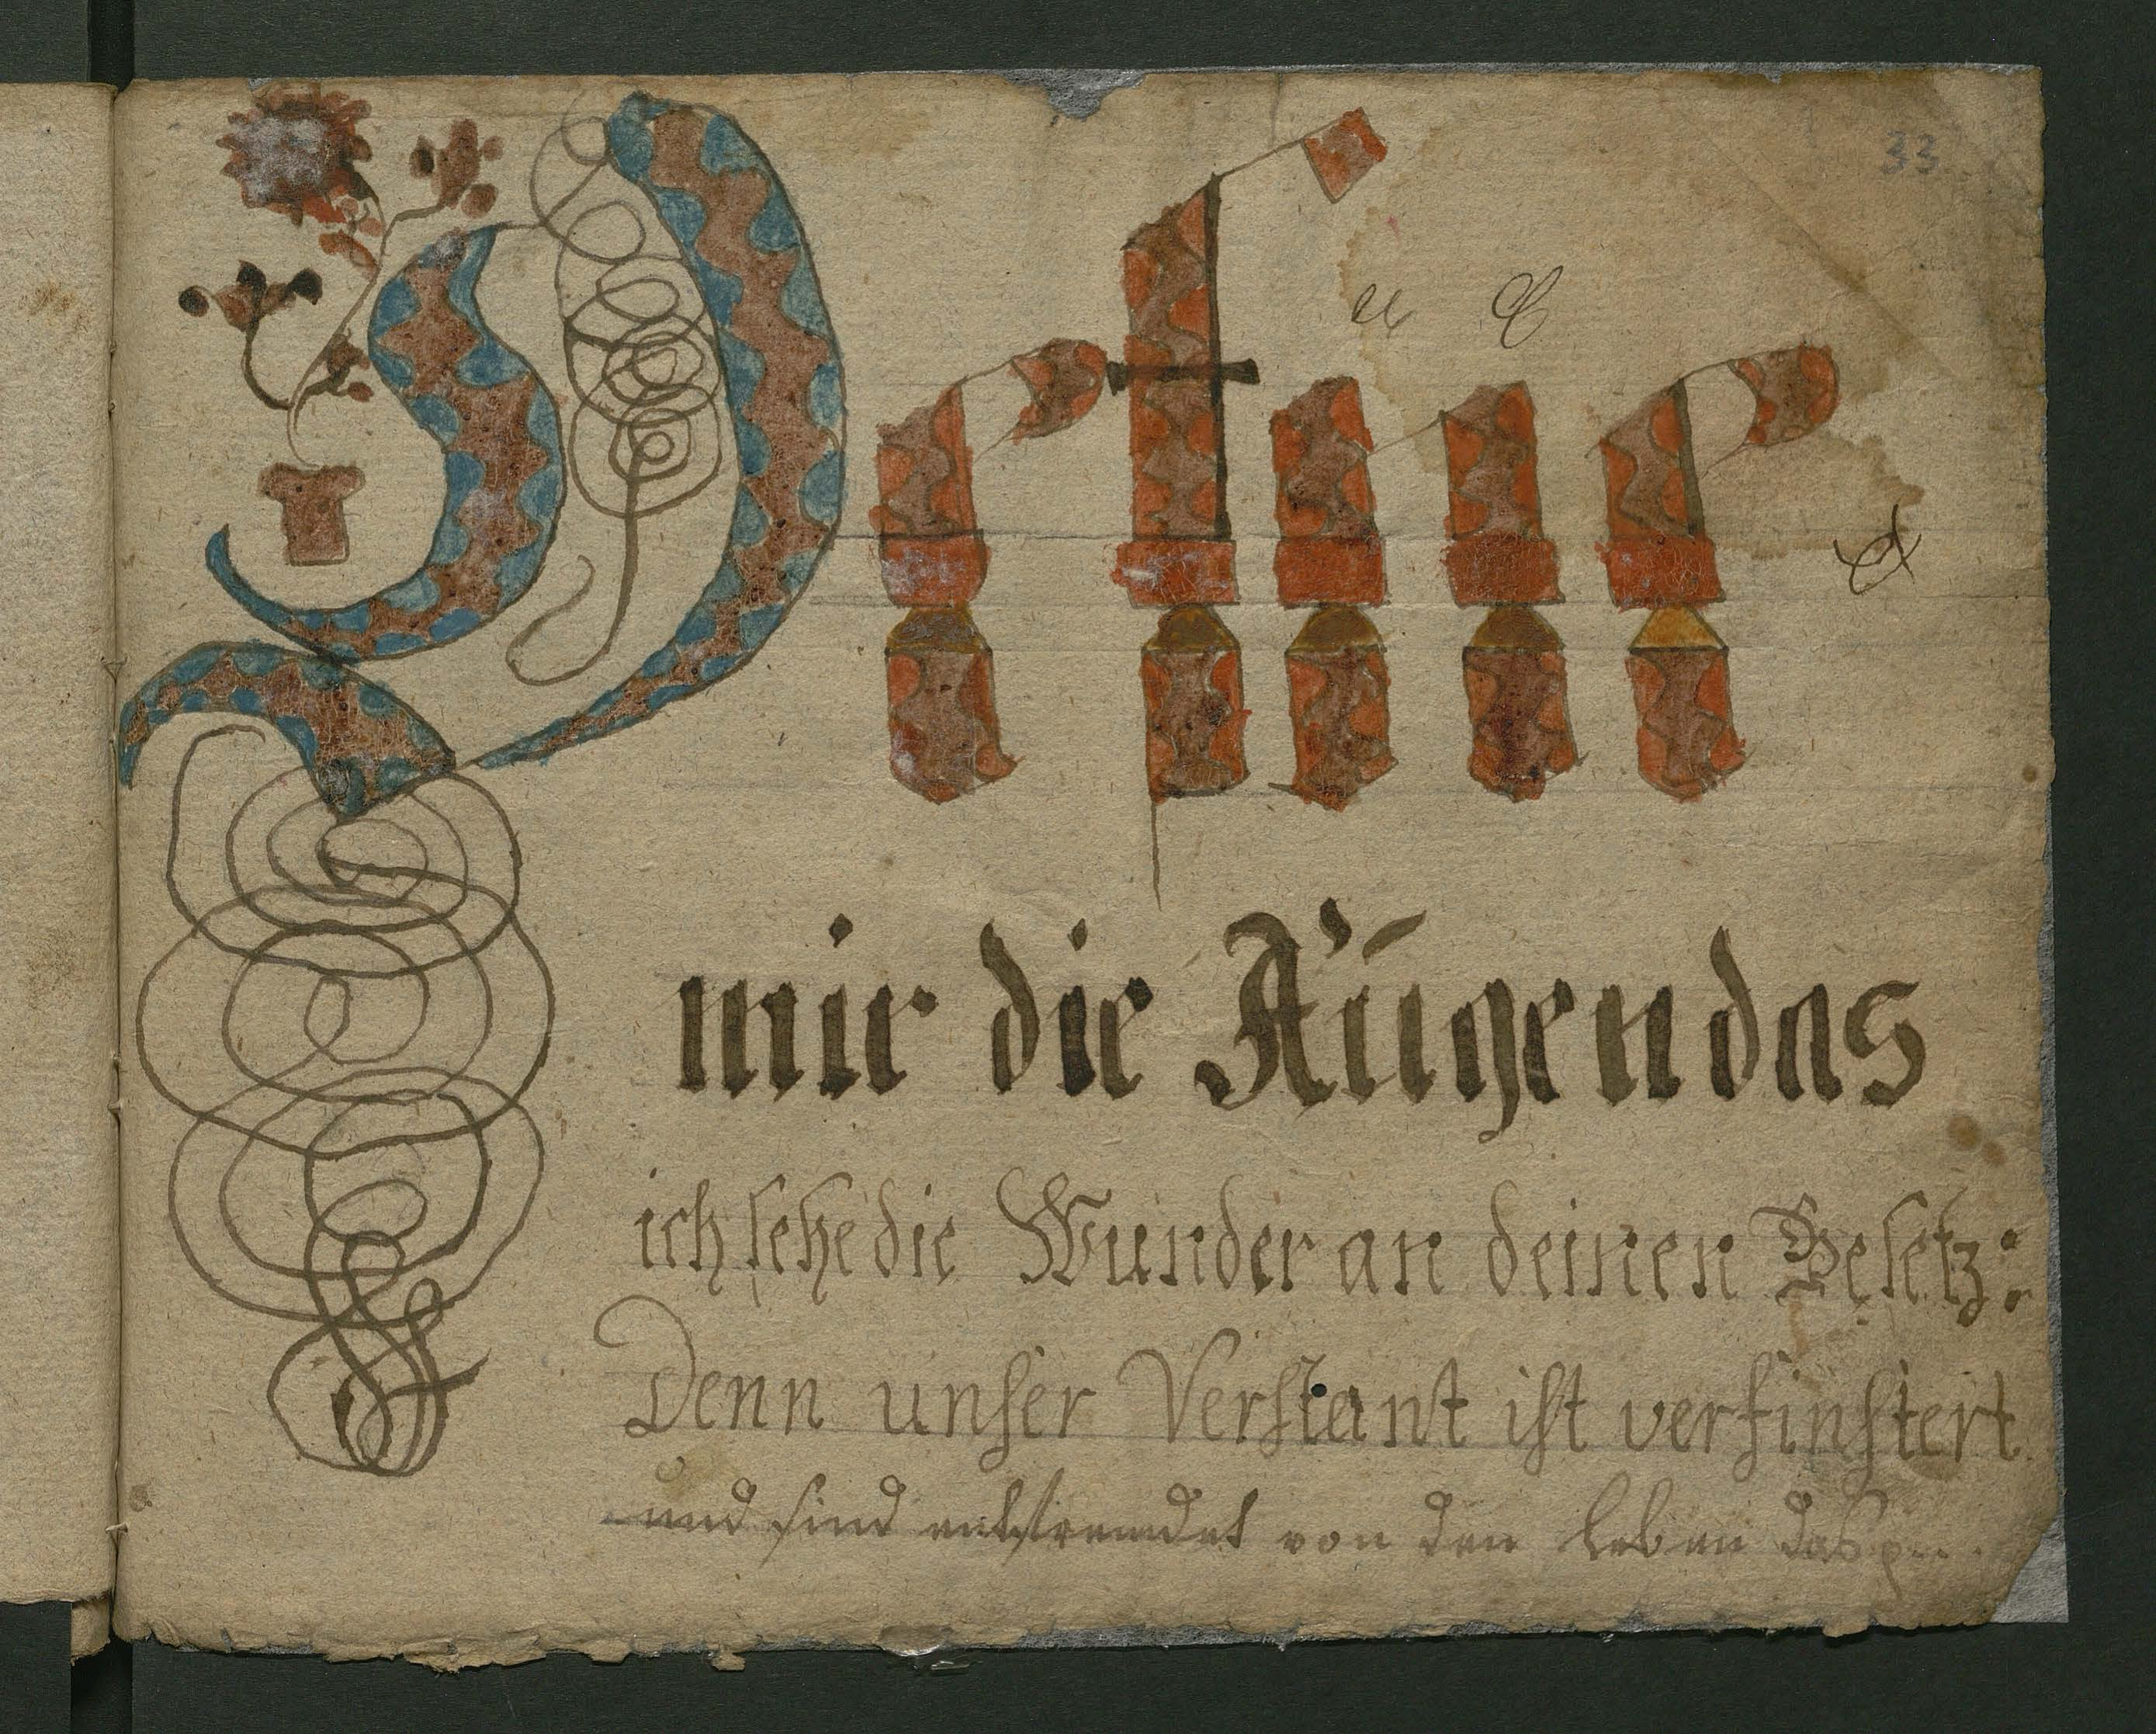 33
Oefne
mir die Augen das
ich sehe die Wunder an deinen Gesetz:
Denn unser Verstant ist verfinstert
und sind entfremdet von den leben das